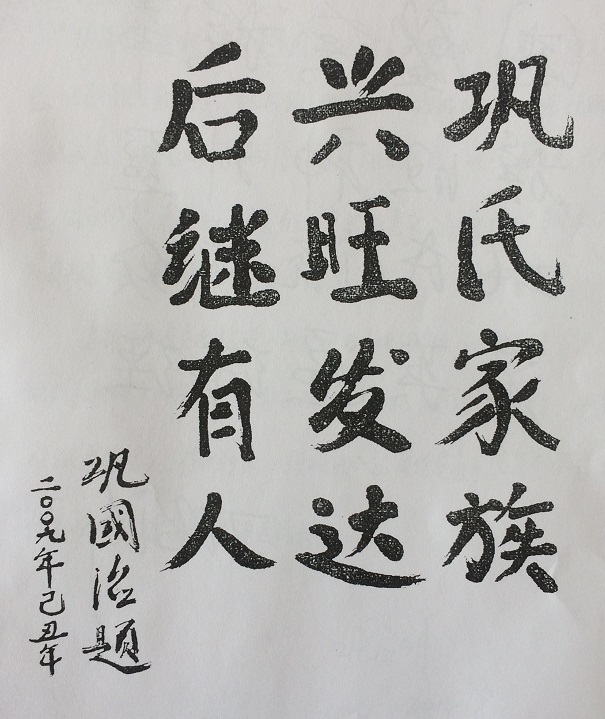 巩氏家族
兴旺发达
后继有人
巩國治題
二〇〇九年己丑年